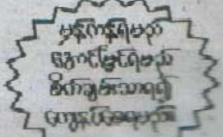 မှန်ကန်ရမည်
အောင်မြင်ရမည်
စိတ်ချမ်းသာရ၍
ကျေနပ်စေရမည်။